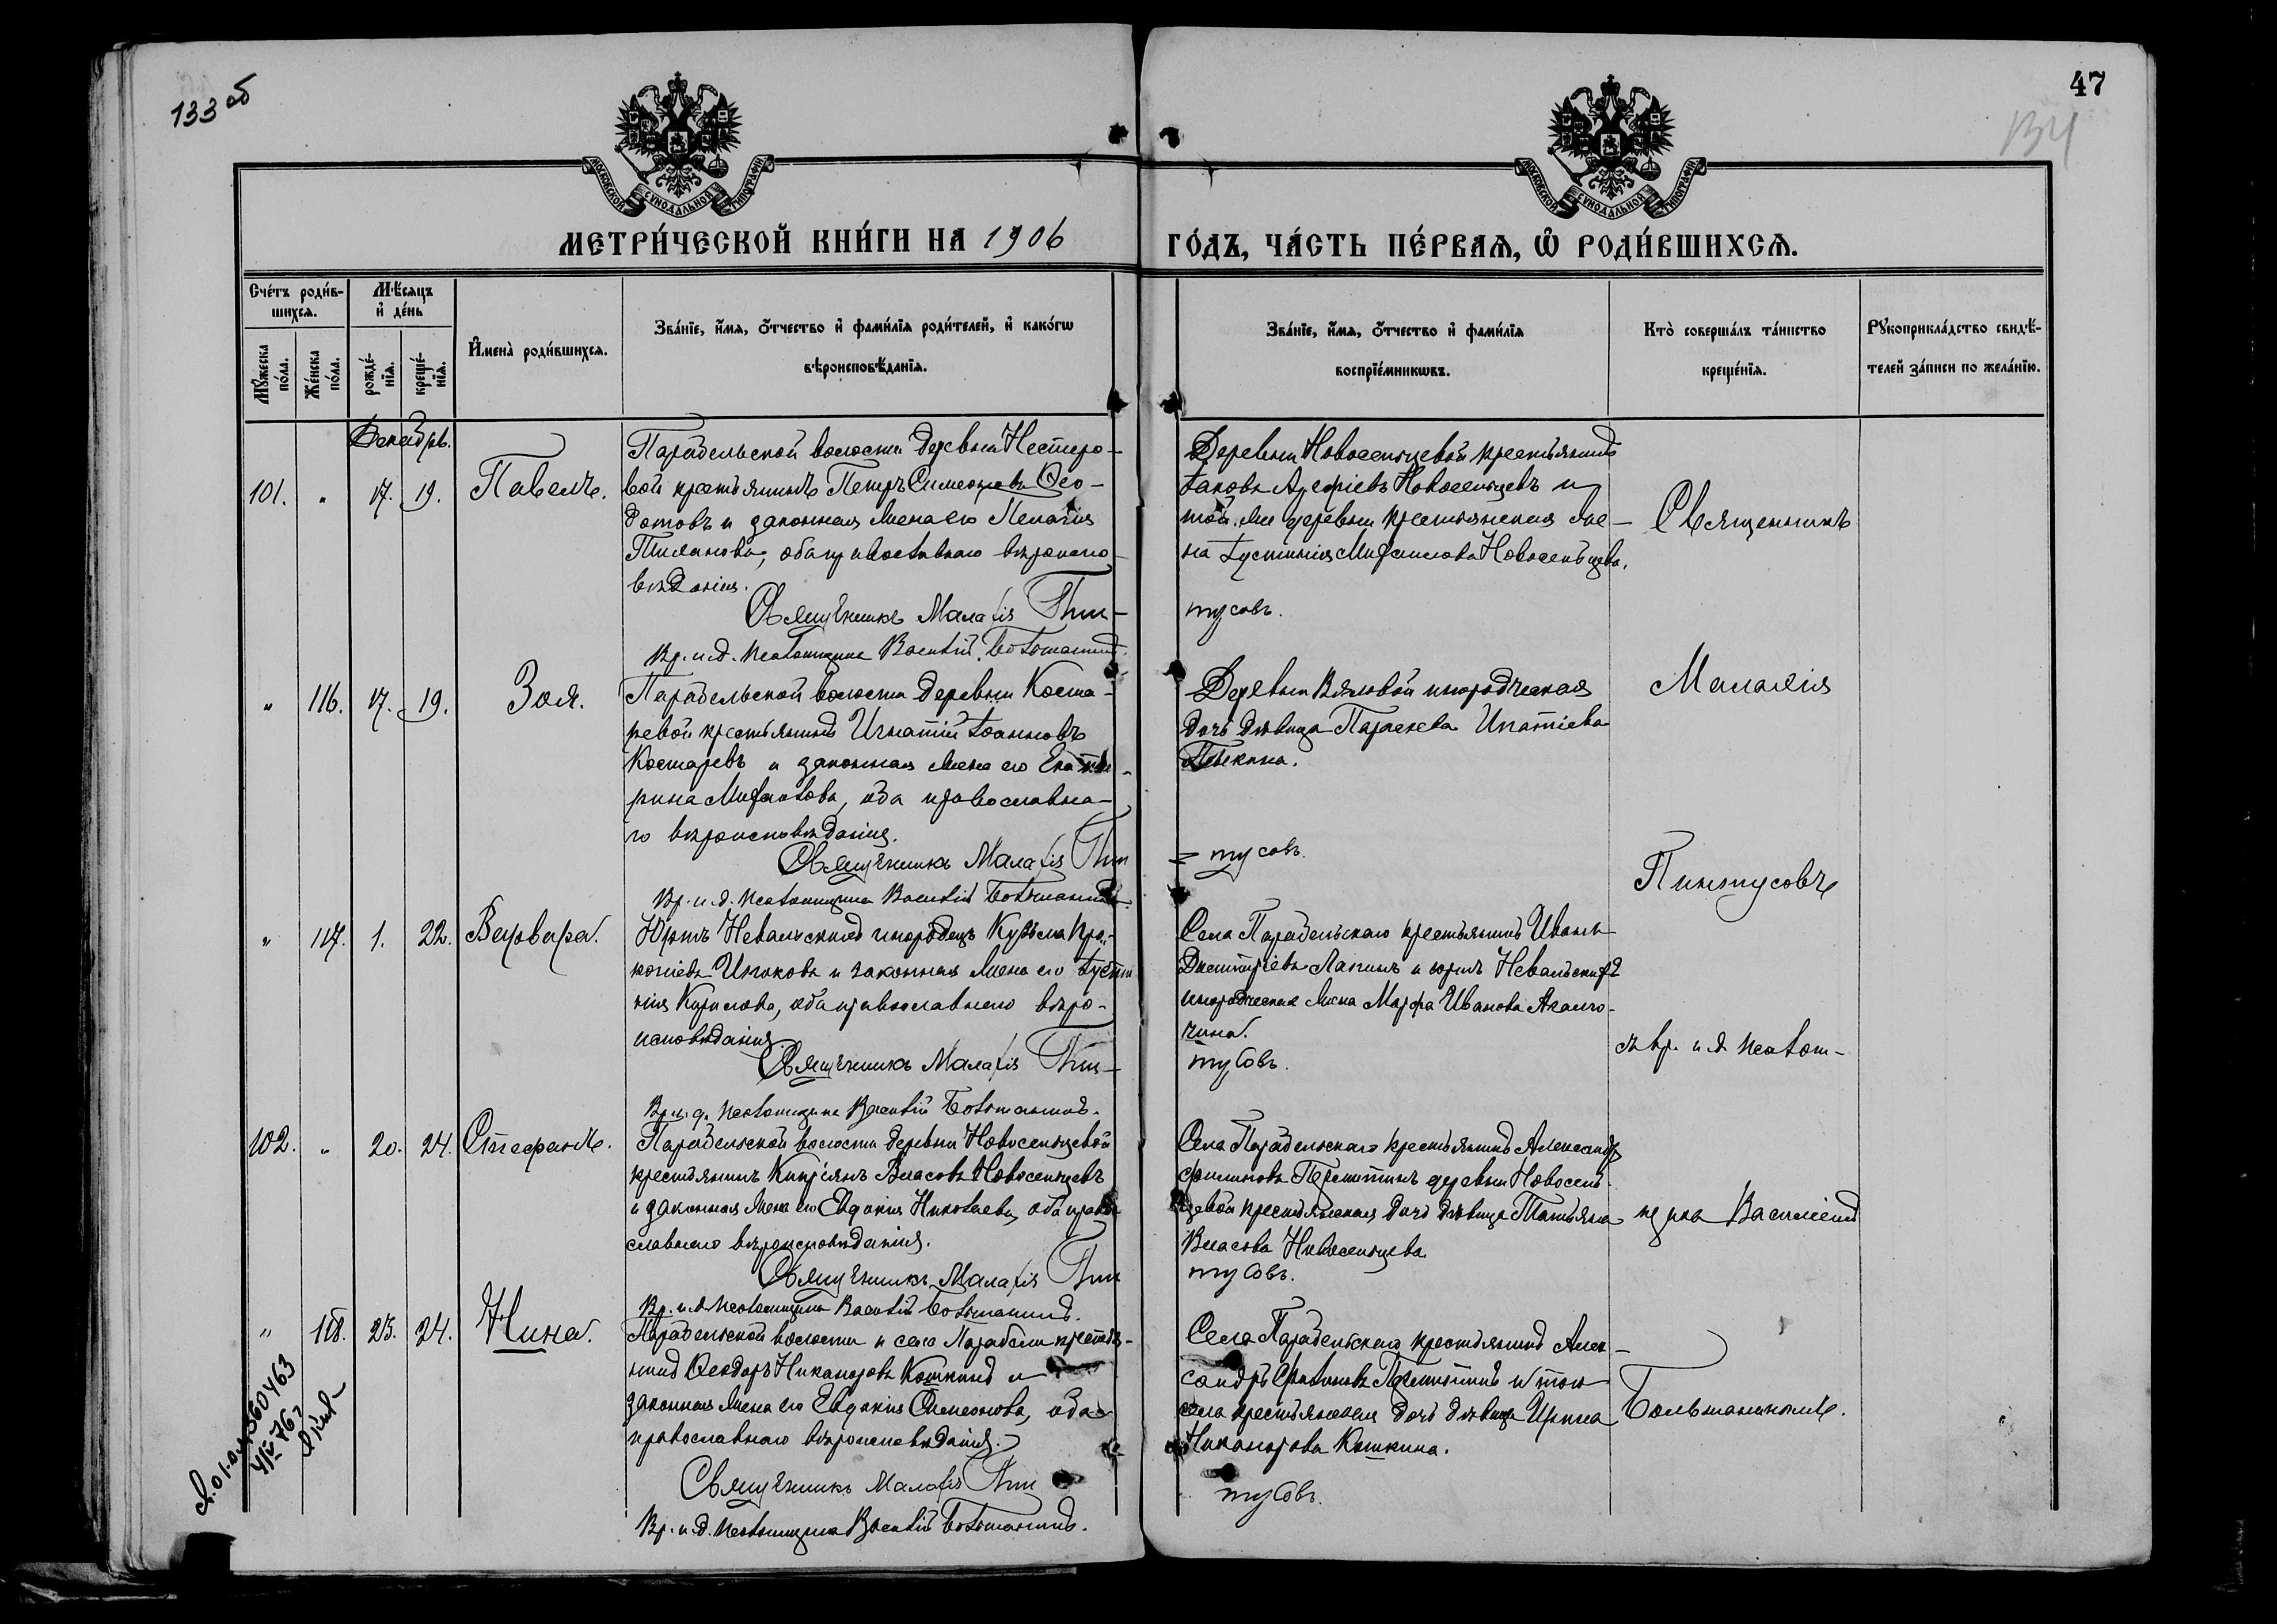 133 об
47
134
МОСКОВСКОЙ СУНОДАЛЬНОЙ ТИПОГРАФІИ
МОСКОВСКОЙ СУНОДАЛЬНОЙ ТИПОГРАФІИ
МЕТРИ́ЧЕСКОЙ КНИ́ГИ НА 1906 ГО́ДЪ, ЧА́СТЬ ПЕ́РВАѦ, Ѡ РОДИ́ВШИХСѦ.
Сче́тъ роди́в-
шихсѧ.
Мѣ́сѧцъ
и де́нь
Мꙋ́жеска по́ла.
Же́нска по́ла.
рожде́-
нїѧ.
креще́-
нїѧ.
Имена̀ роди́вшихсѧ.
Зва́нїе, и́мѧ, о́тчество и фами́лїѧ роди́телей, и како́гѡ
вѣроисповѣ́данїѧ.
Зва́нїе, и́мѧ, о́тчество и фами́лїѧ
воспрїе́мникѡвъ.
Кто̀ соверша́лъ та́инство
креще́нїѧ.
Рꙋкоприкла́дство свидѣ́-
телей за́писи по жела́нїю.
Декабрь.
101. " 17. 19. Павелъ.
Парабельской волости деревни Нестеро-
вой крестьянинъ Петръ Симеоновъ Ѳео-
дотовъ и законная жена его Пелагія
обa православнаго вѣроиспо-
вѣданія.
Священникъ Малахія Пин-
тусовъ.
Вр. и. д. псаломщика Василій Большанинъ.
Деревни Новосельцевой крестьянинъ
Іаковъ Новосельцевъ и
той же деревни крестьянская же-
на Іустинія Михаилова Новосельцева.
" 116. 17. 19. Зоя.
Парабельской волости деревни Коста-
ревой крестьянинъ Игнатій Іоанновъ
Костаревъ и законная жена его Екате-
рина Михаилова, оба православна-
го вѣроисповѣданія.
Священникъ Малахія Пин
= тусовъ.
Вр. и. д. псаломщика Василій Большанинъ.
Деревни Вяловой инородческая
дочь дѣвица Параскева Ипатіева
" 117. 1. 22. Варвара.
Юртъ Невальскихъ инородецъ Кузьма Про-
копіевъ и законная жена его Іусти
нія Кирилова, оба православнаго вѣро-
исповѣданія
Священникъ Малахія Пин-
тусовъ.
Вр. и. д. псаломщика Василій Большанинъ.
Села Парабельскаго крестьянинъ Иванъ
Димитріевъ Лапинъ и юртъ Невальскихъ
инородческая жена Марѳа Иванова
102. " 20. 24. Стефанъ.
Парабельской волости деревни Новосельцевой
крестьянинъ Кипріянъ Власовъ Новосельцевъ
и законная жена его Евдокія Николаева, оба право-
славнаго вѣроисповѣданія.
Священникъ Малахія Пин
тусовъ.
Вр. и. д. псаломщика Василій Большанинъ.
Села Парабельскаго крестьянинъ Александръ
деревни Новосель-
цевой крестьянская дочь дѣвица Татьяна
Власова Новосельцева
" 118. 23. 24. Нина.
Парабельской волости и села Парабели крестья-
нинъ Ѳеодоръ Никаноровъ Кошкинъ и
законная жена его Евдокія Симеонова, оба
православнаго вѣроисповѣданія.
Священникъ Малахія Пин
тусовъ.
Вр. и. д. псаломщика Василій Большанинъ.
Села Парабельскаго крестьянинъ Алек-
сандръ и того
села крестьянская дочь дѣвица Ирина
Никанорова Кошкина.
Священникъ
Малахія
Пинтусовъ
съ вр. и д псалом-
щика Василіемъ
Большанинымъ.